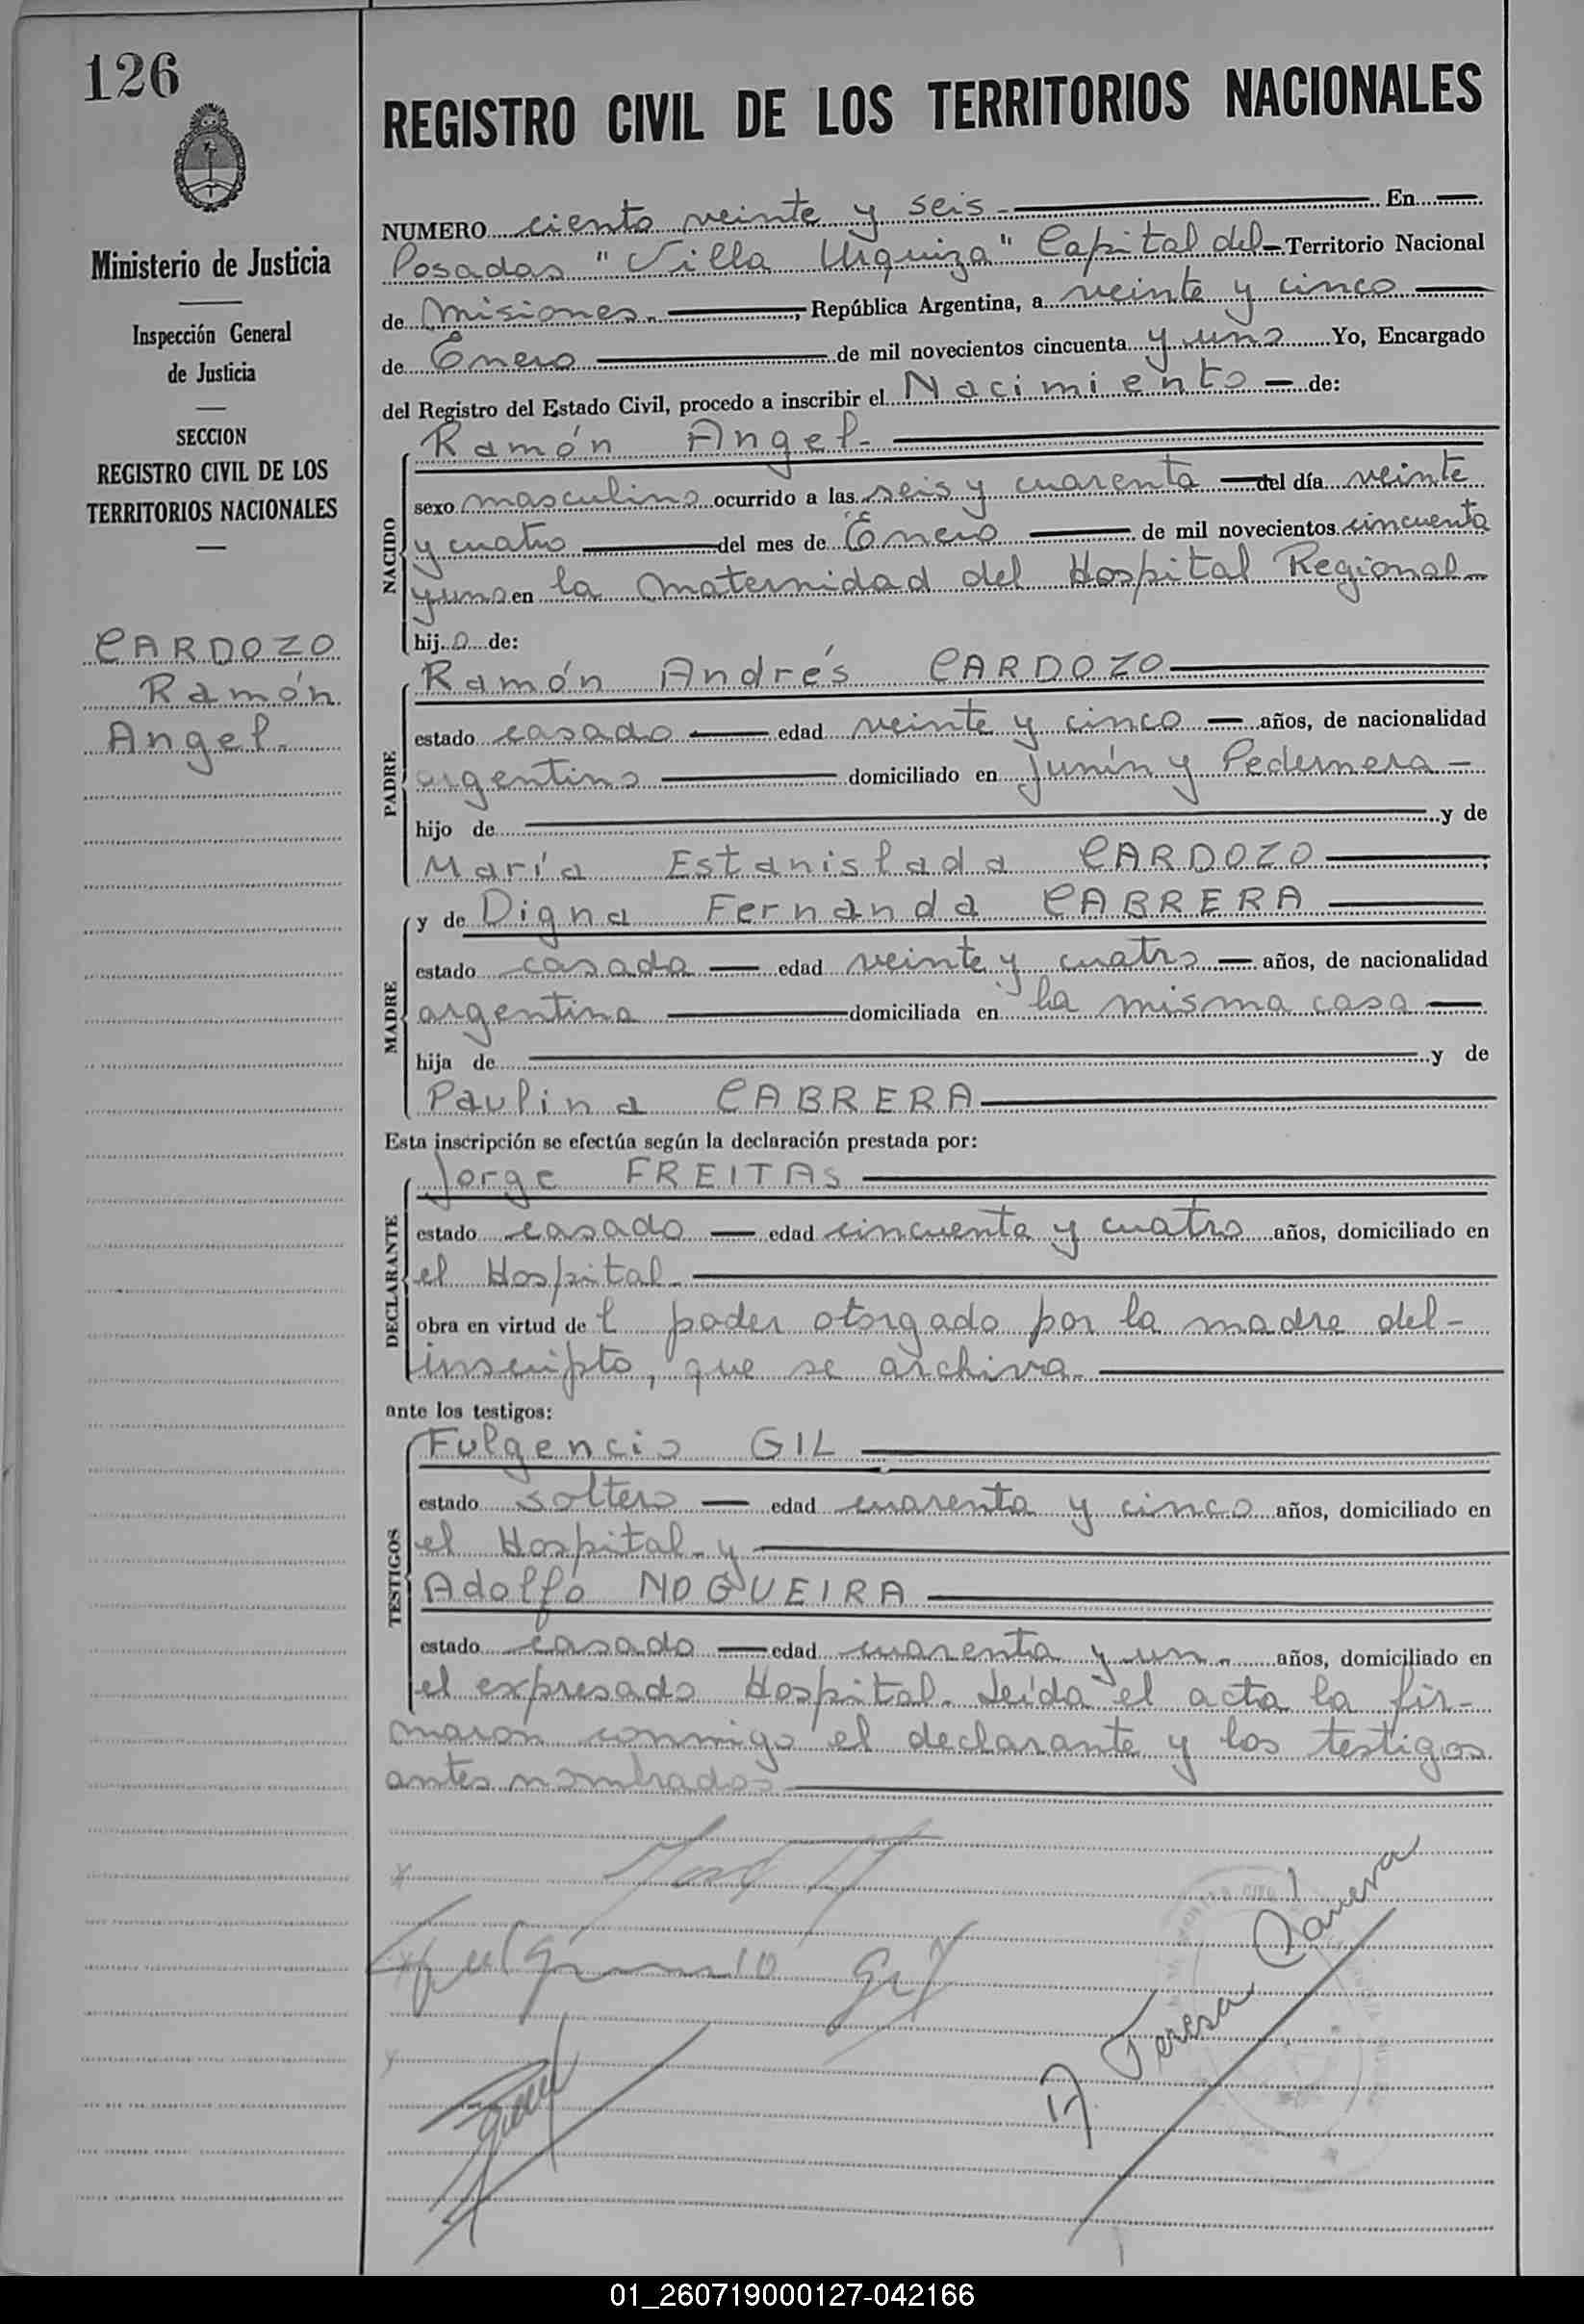 126
Ministerio de Justicia
Inspección General
de Justicia
SECCION
REGISTRO CIVIL DE LOS
TERRITORIOS NACIONALES
CARDOZO
Ramón
Angel.
REGISTRO CIVIL DE LOS TERRITORIOS NACIONALES
NUMERO ciento veinte y seis - En
Posadas "Villa Urquiza" Capital del Territorio Nacional
de Misiones. , República Argentina, a veinte y cinco
de Enero de mil novecientos cincuenta y uno Yo, Encargado
del Registro del Estado Civil, procedo a inscribir el Nacimiento de:
NACIDO
Ramón Angel.
sexo masculino ocurrido a las seis y cuarenta del día veinte
y cuatro del mes de Enero de mil novecientos cincuenta
y uno en la Maternidad del Hospital Regional
hijo de:
PADRE
Ramón Andrés CARDOZO
estado casado edad veinte y cinco años, de nacionalidad
argentino domiciliado en Junín y Pedernera
hijo de y de
María Estanislada CARDOZO ;
MADRE
y de Digna Fernanda CABRERA
estado casada edad veinte y cuatro años, de nacionalidad
argentina domiciliada en la misma casa
hija de y de
Paulina CABRERA
Esta inscripción se efectúa según la declaración prestada por:
DECLARANTE
Jorge FREITAS
estado casado edad cincuenta y cuatro años, domiciliado en
el Hospital.
obra en virtud del poder otorgado por la madre del
inscripto, que se archiva.
ante los testigos:
TESTIGOS
Fulgencio GIL
estado soltero edad cuarenta y cinco años, domiciliado en
el Hospital y
Adolfo NOGUEIRA
estado casado edad cuarenta y un años, domiciliado en
el expresado Hospital. Leída el acta la fir-
maron conmigo el declarante y los testigos
antes nombrados
Fulgencio Gil
A. Teresa
01_260719000127-042166